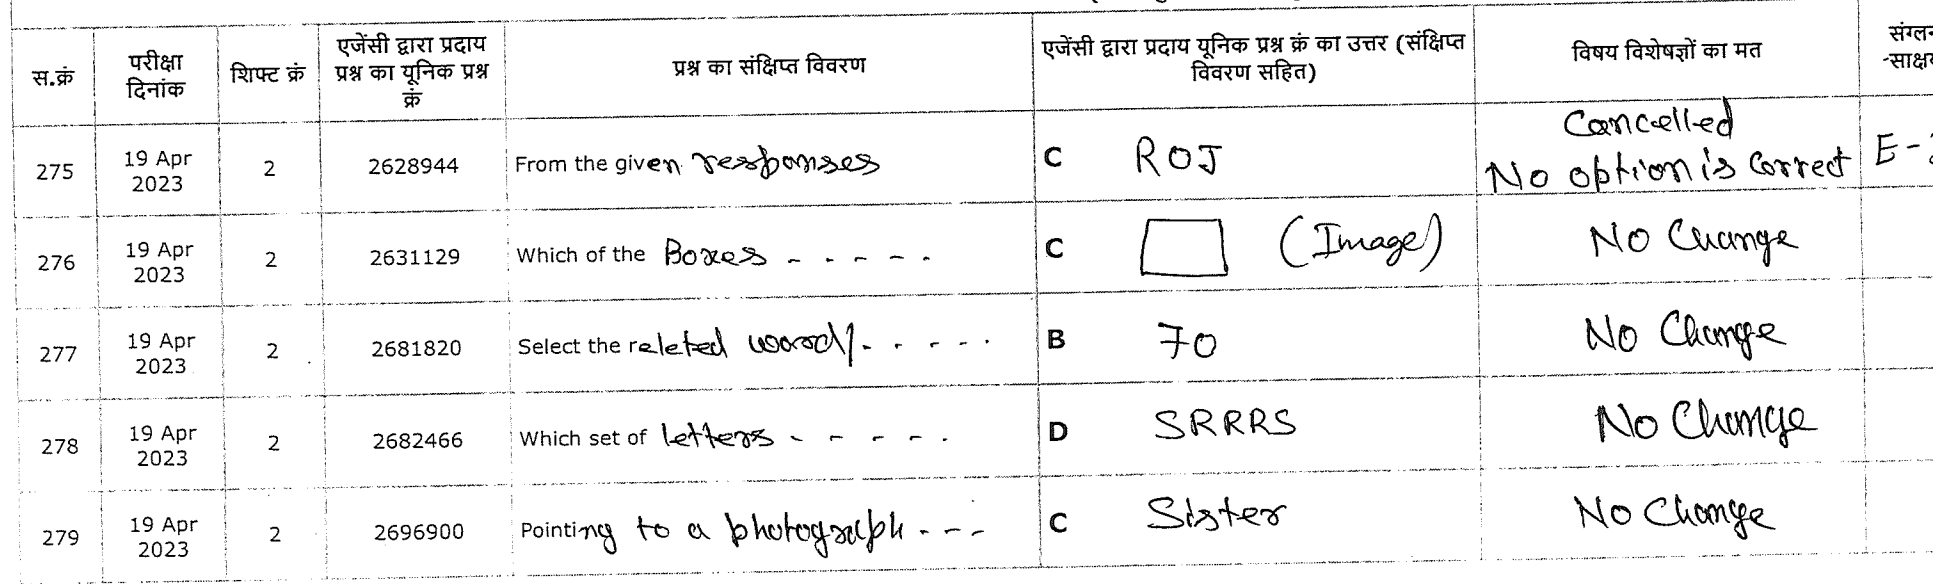 स.क्रं
परीक्षा
दिनांक
शिफ्ट क्रं
एजेंसी द्वारा प्रदाय
प्रश्न का यूनिक प्रश्न
क्रं
प्रश्न का संक्षिप्त विवरण
एजेंसी द्वारा प्रदाय यूनिक प्रश्न क्रं का उत्तर (संक्षिप्त
विवरण सहित)
विषय विशेषज्ञों का मत
275
19 Apr
2023
2
2628944
From the given responses
C ROJ
Cancelled
No option is Correct
E-
276
19 Apr
2023
2
2631129
Which of the Boxes - - - - -
C (Image)
No Change
277
19 Apr
2023
2
2681820
Select the releted word/- - - - -
B 70
No Change
278
19 Apr
2023
2
2682466
Which set of letters - - - - -
D SRRRS
No Change
279
19 Apr
2023
2
2696900
Pointing to a photograph - - -
C Sister
No Change